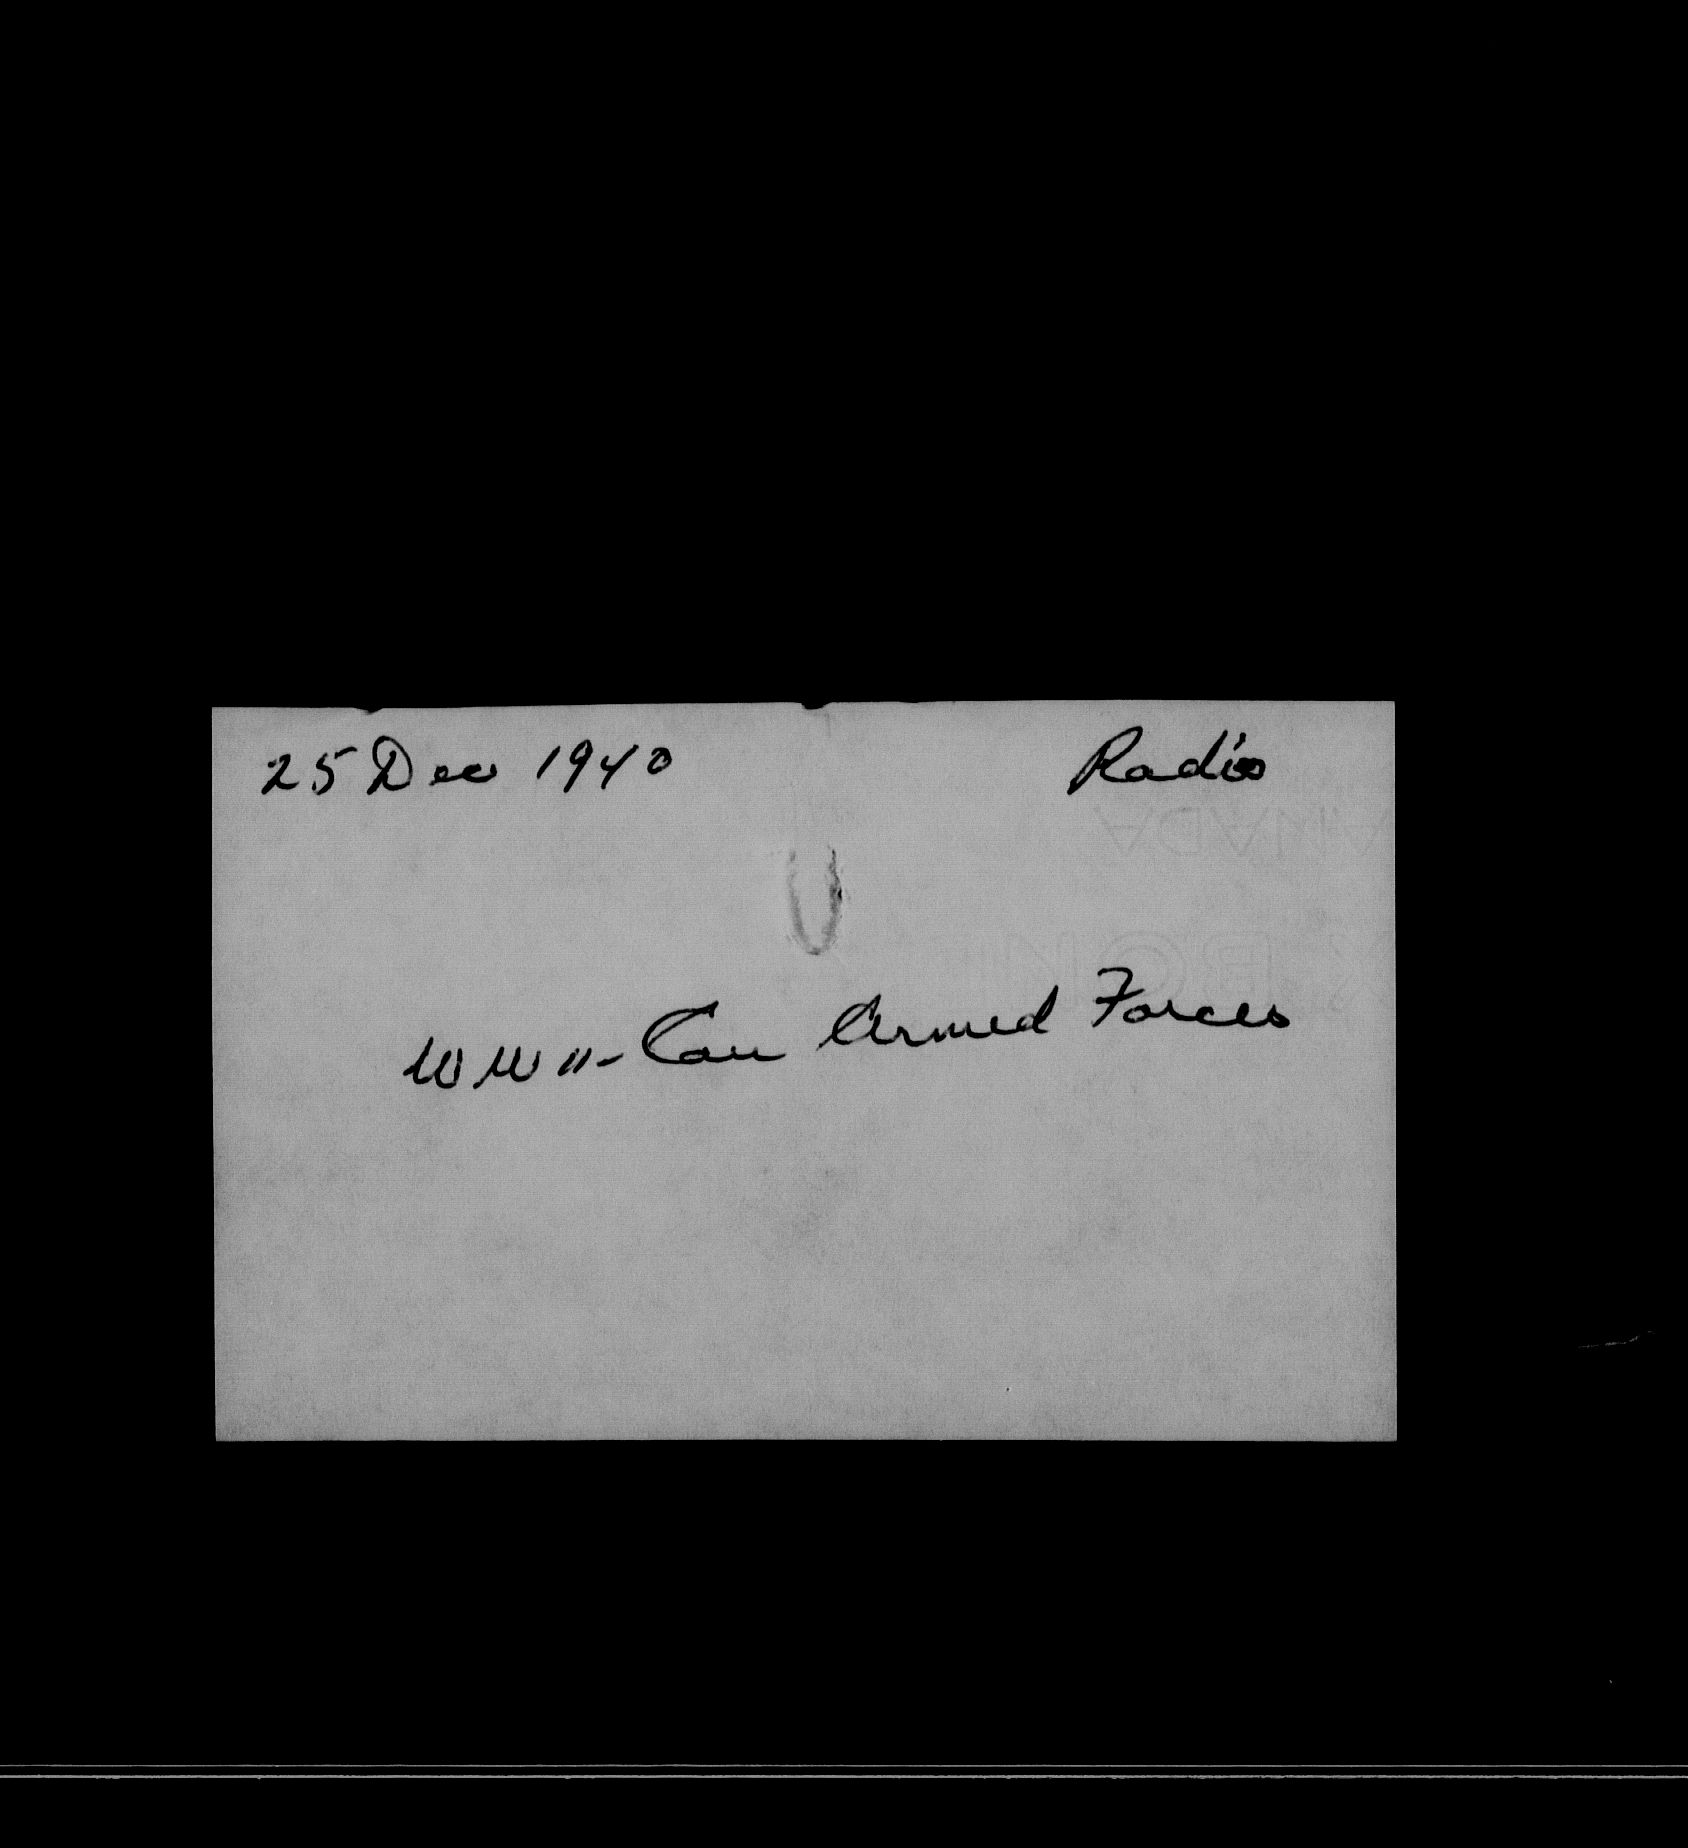 25 Dec 1940 Radio
WW II - Can Armed Forces